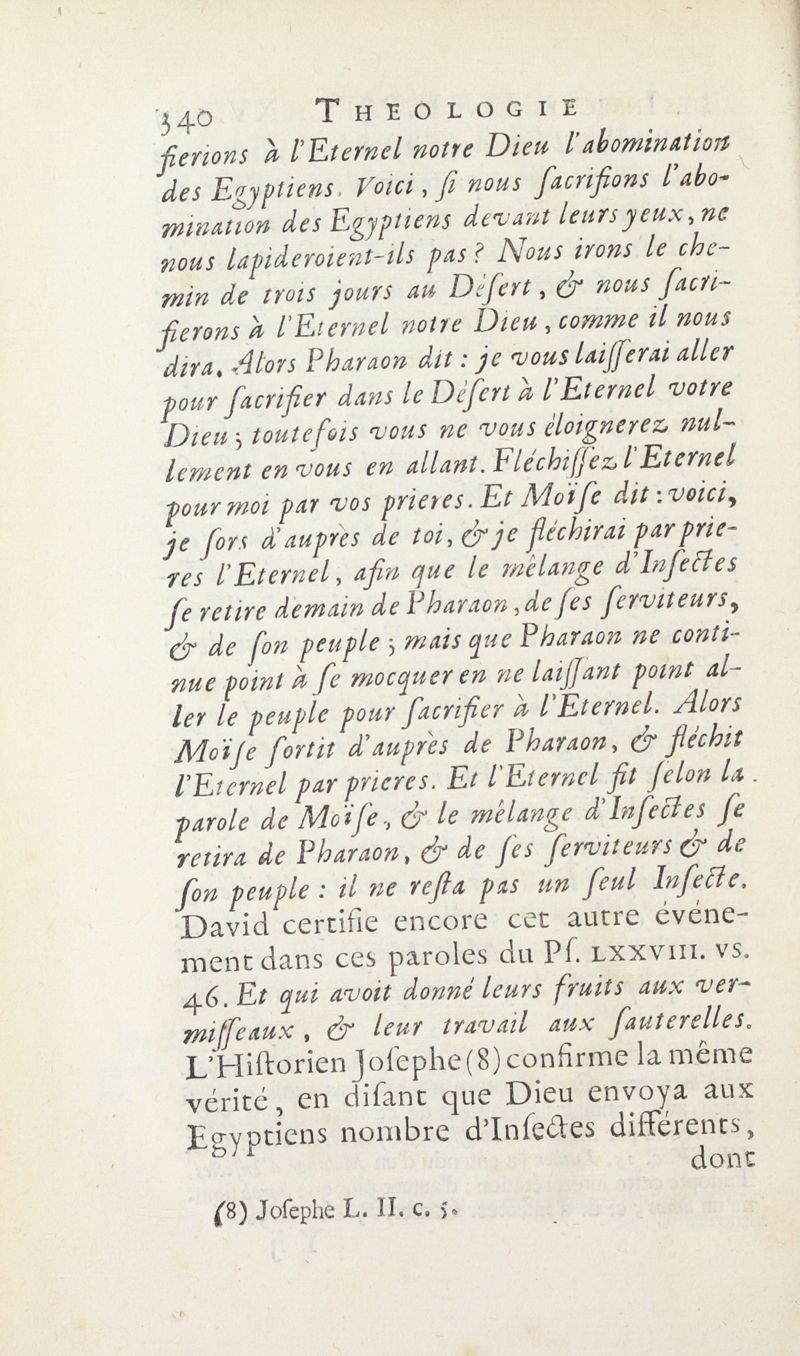 340 THEOLOGIE
fierions à l'Eternel notre Dieu l'abomination
des Egyptiens. Voici, ſi nous ſacrifions l'abo-
mination des Egyptiens devant leurs yeux, ne
nous lapideroient-ils pas? Nous irons le che-
min de trois jours au Déſert, & nous ſacri-
fierons à l'Eternel notre Dieu, comme il nous
dira. Alors Pharaon dit: je vous laiſſerai aller
pour ſacrifier dans le Déſert à l'Eternel votre
Dieu; toutefois vous ne vous éloignerez nul-
lement en vous en allant. Fléchiſſez l'Eternel
pour moi par vos prieres. Et Moïſe dit: voici,
je ſors d'auprès de toi, & je fléchirai par prie-
res l'Eternel, afin que le mêlange d'Inſectes
ſe retire demain de Pharaon, de ſes ſerviteurs,
& de ſon peuple; mais que Pharaon ne conti-
nue point à ſe mocquer en ne laiſſant point al-
ler le peuple pour ſacrifier à l'Eternel. Alors
Moïſe ſortit d'auprès de Pharaon, & fléchit
l'Eternel par prieres. Et l'Eternel fit ſelon la
parole de Moïſe, & le mêlange d'Inſectes ſe
retira de Pharaon, & de ſes ſerviteurs & de
ſon peuple: il ne reſta pas un ſeul Inſecte.
David certifie encore cet autre événe-
ment dans ces paroles du Pſ. LXXVIII. vs.
46. Et qui avoit donné leurs fruits aux ver-
miſſeaux, & leur travail aux ſauterelles.
L'Hiſtorien Joſephe(8) confirme la même
vérité, en diſant que Dieu envoya aux
Egyptiens nombre d'Inſectes différents,
dont
(8) Joſephe L. II. c. 5.